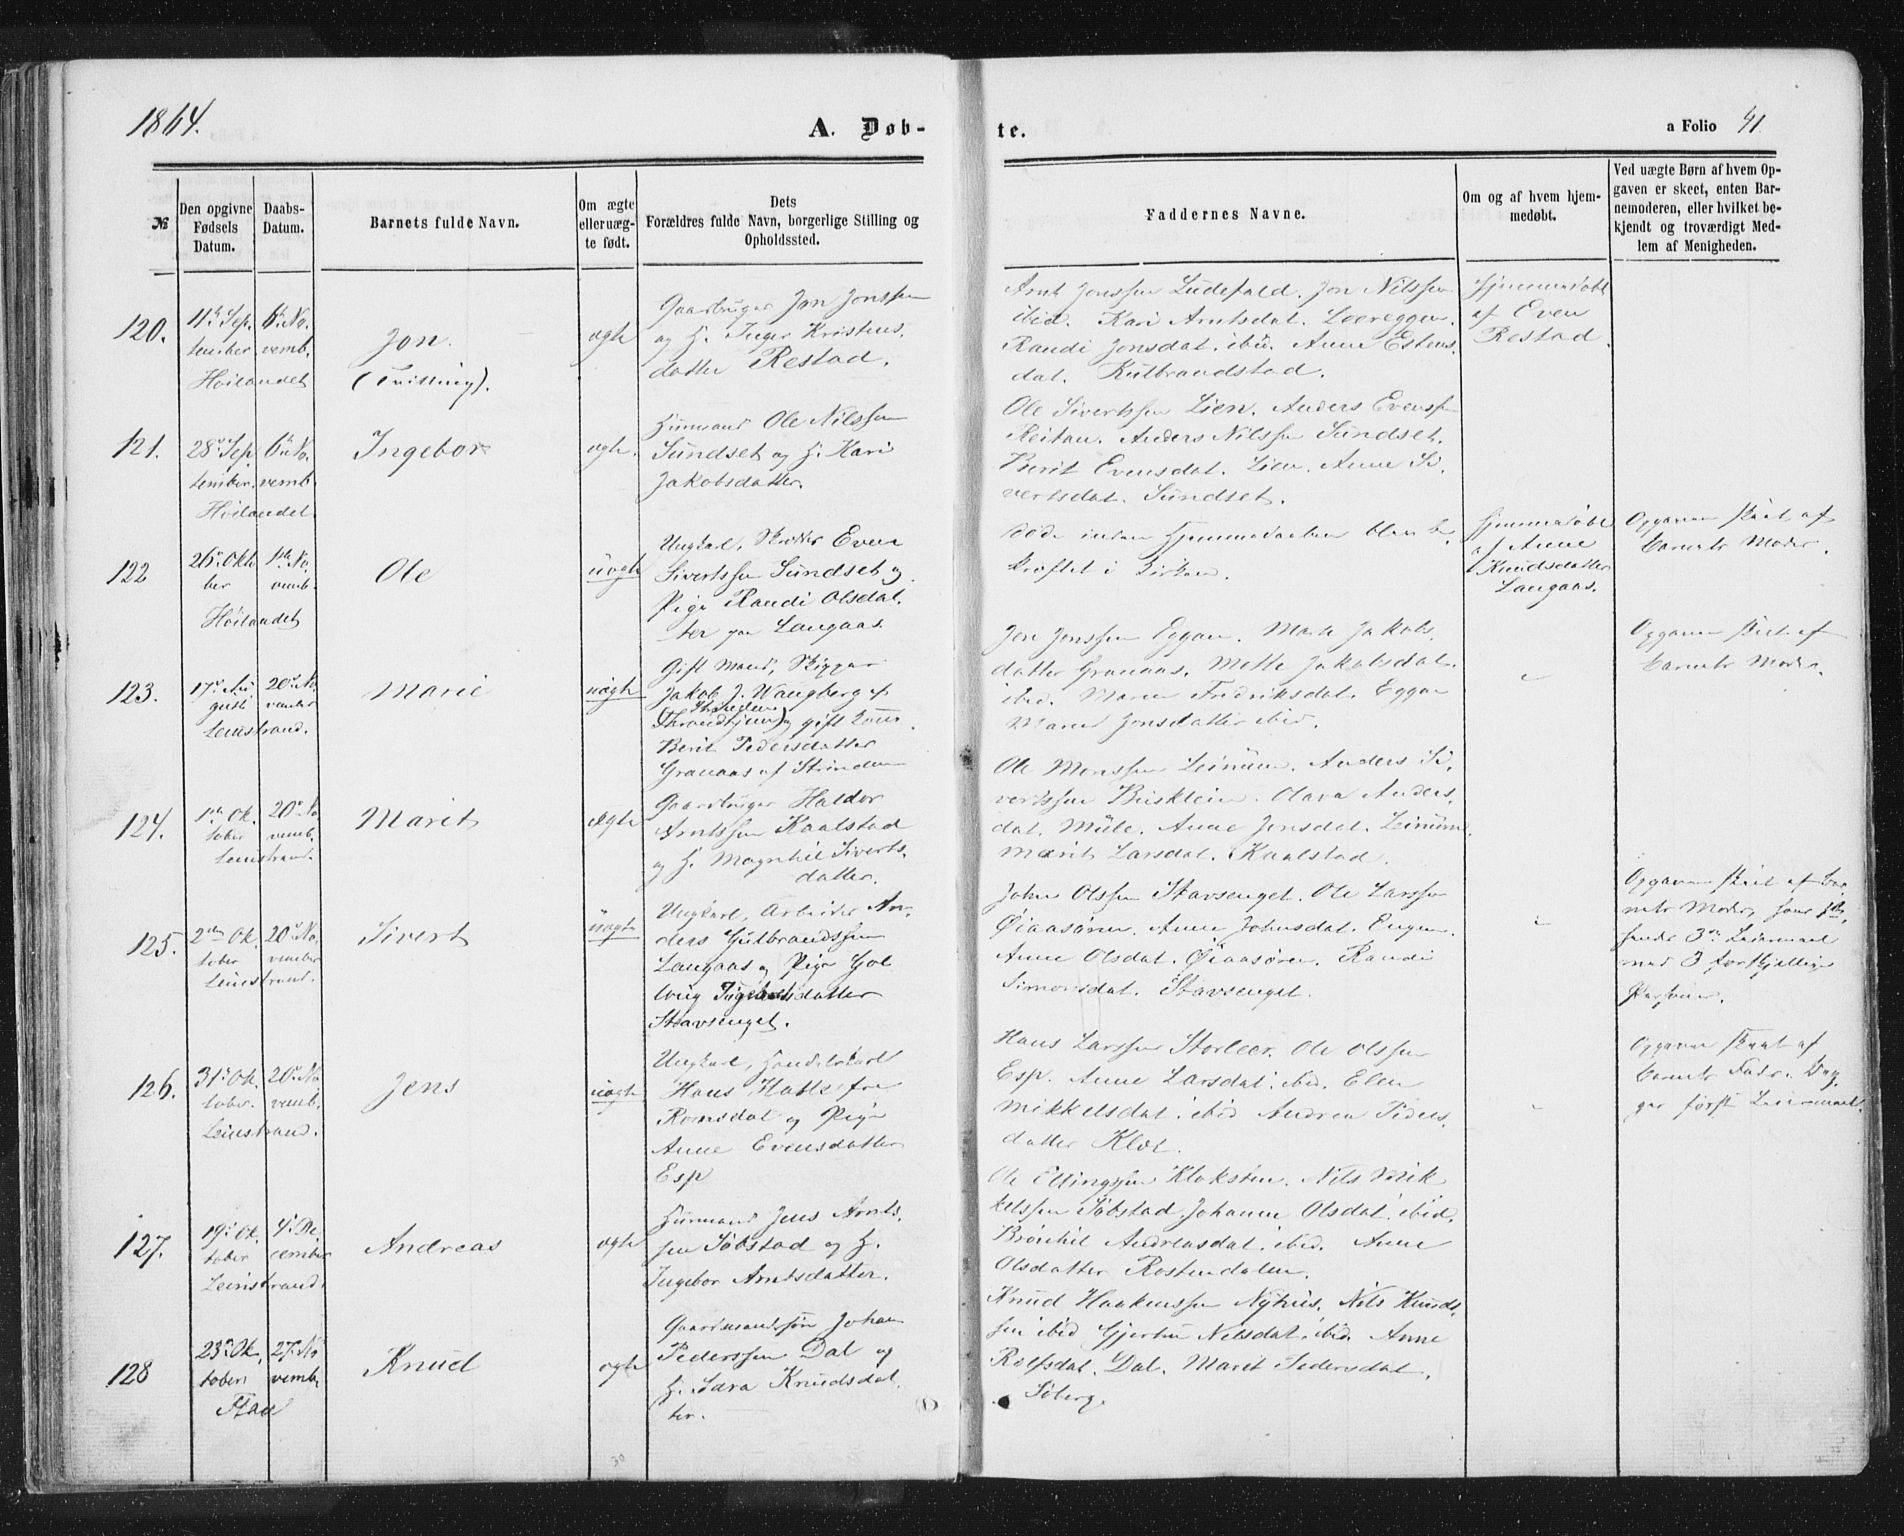 1864.
A. Døb-
te.
a Folio 41
№
Den opgivne Fødsels Datum.
Daabs-Datum.
Barnets fulde Navn.
Om ægte eller uægte født.
Dets Forældres fulde Navn, borgerlige Stilling og Opholdssted.
Faddernes Navne.
Om og af hvem hjemmedøbt.
Ved uægte Børn af hvem Opgaven er skeet, enten Barnemoderen, eller hvilket bekjendt og troværdigt Medlem af Menigheden.
120.
11te Sep.
tember
Høilandet
6te No.
vemb.
Jon.
(Tvilling).
ægte
Gaardbruger Jon Jonssen
og H. Inger Kristens.
datter Restad.
Arnt Jonssen Ludefald. Jon Nilssen
ibid. Kari Arntsdat. Loereggen.
Randi Jonsdat. ibid. Anne Estens.
dat. Kulbrandstad.
Hjemmedøbt
af Even
Restad.
121.
28de Sep
tember.
Høilandet
6te No.
vemb.
Ingebor
ægte.
Husmand Ole Nilssen
Sundset og H. Kari
Jakobsdatter.
Ole Sivertssen Lien. Anders Evenssen
Reitan. Anders Nilssen Sundset.
Berit Evensdat. Lien. Anne Si.
vertsdat. Sundset.
122
26de Okto
ber
Høilandet
1ste No.
vemb.
Ole
uægte
Ungkarl, Even
Sivertssen Sundset og
Pige Randi Olsdat.
ter paa Langaas
Døde inden Hjemmedaaben blev be
kræftet i Kirken.
Hjemmedøbt
af Anne
Knudsdatter
Langaas.
Opgaven skeet af
Barnets Moder.
123.
17de Au
gust
Leinstrand.
20de No.
vember
Marie
uægte
Gift Mand,
Jakob J. Waugberg af
Strinden
(Throndhjem) og gift Kone
Berit Pedersdatter
Granaas af Strinden
Jon Jonssen Eggan. Marte Jakobs.
datter Granaas. Mette Jakobsdat.
ibid. Maren Fredriksdat. Eggan
Maren Jonsdatter ibid.
Opgaven skeet af
Barnets Moder.
124.
1ste Ok.
tober
Leinstrand.
20de No
vemb.
Marit
ægte
Gaardbruger Haldor
Arntssen Kaalstad
og H. Magnhil Siverts.
datter.
Ole Monssen Leinum. Anders Si.
vertssen Busklein. Olava Anders.
dat. Mule. Anne Jensdat. Leinum.
Marit Larsdat. Kaalstad.
125.
2den Ok.
tober
Leinstrand.
20de No.
vember
Sivert
uægte
Ungkarl, Arbeider An.
ders Gulbrandssen
Langaas og Pige Gol
lvig Ingebretsdatter
Stavsenget.
John Olssen Stavsenget. Ole Larssen
Øiaasøren. Anne Johnsdat. Engen.
Anne Olsdat. Øiaasøren. Randi
Simonsdat. Stavsenget.
Opgaven skeet af Bar
nets Moder,
3die Leiermaal
med 3 forskjellige
Personer.
126.
31te Ok.
tober.
Leinstrand.
20de No.
vemb.
Jens
uægte
Ungkarl, Handelskarl
Hans Hatle fra
Romsdal og Pige
Anne Evensdatter
Esp
Hans Larssen Storleer. Ole Olssen
Esp. Anne Larsdat. ibid. Elen
Mikkelsdat. ibid Andrea Peders.
datter Klæt.
Opgaven skeet af
Barnets Fader. Beg
ges første Leiermaal.
127.
19de Ok.
tober
Leinstrand.
4de De
cember
Andreas
ægte
Husmand Jens Arnts.
sen Søbstad og H.
Ingebor Arntsdatter.
Ole Ellingssen Kloksten. Nils Mik
kelssen Søbstad Johanne Olsdat. ibid.
Brønhil Andreasdat. ibid. Anne
Olsdatter Rostendalen.
128
23de Ok.
tober
Flaa
27de No
vemb.
Knud
ægte
Gaardmandssøn Johan
Pederssen Dal og
H. Sara Knudsdat.
ter.
Knud Haakenssen Nyhus. Nils Knuds.
sen ibid Gjertru Nilsdat. ibid. Anne
Rolfsdat. Dal. Marit Pedersdat.
Søberg.